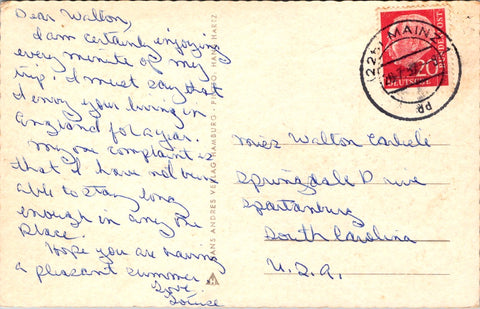 Dear Walton,
I am certainly enjoying
every minute of my
trip. I must say that
I envy your living in
England for a year.
My one complaint is
that I have not been
able to stay long
enough in any one
place.
Hope you are having
a pleasant summer
Love
Louise
HANS ANDRES VERLAG HAMBURG
(22b) MAINZ
20
DEUTSCHE
Miss Walton Carlisle
Springdale Drive
Spartanburg
South Carolina
U.S.A.